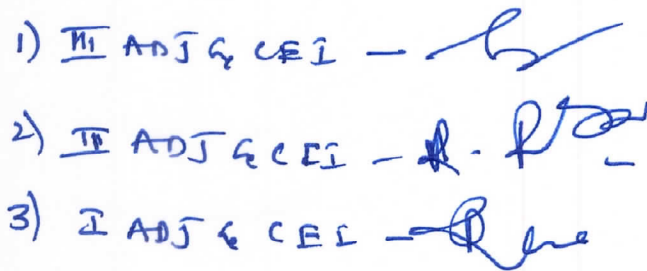 1) III ADJ & CEI -
2) II ADJ & CEI - R.
3) I ADJ & CEI -